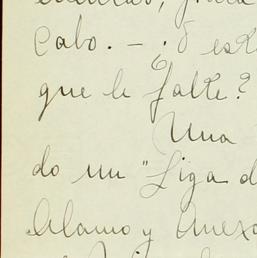 Cabo. - . O est
que le falte?
Una
do un "Liga d
Alamo y Anexo